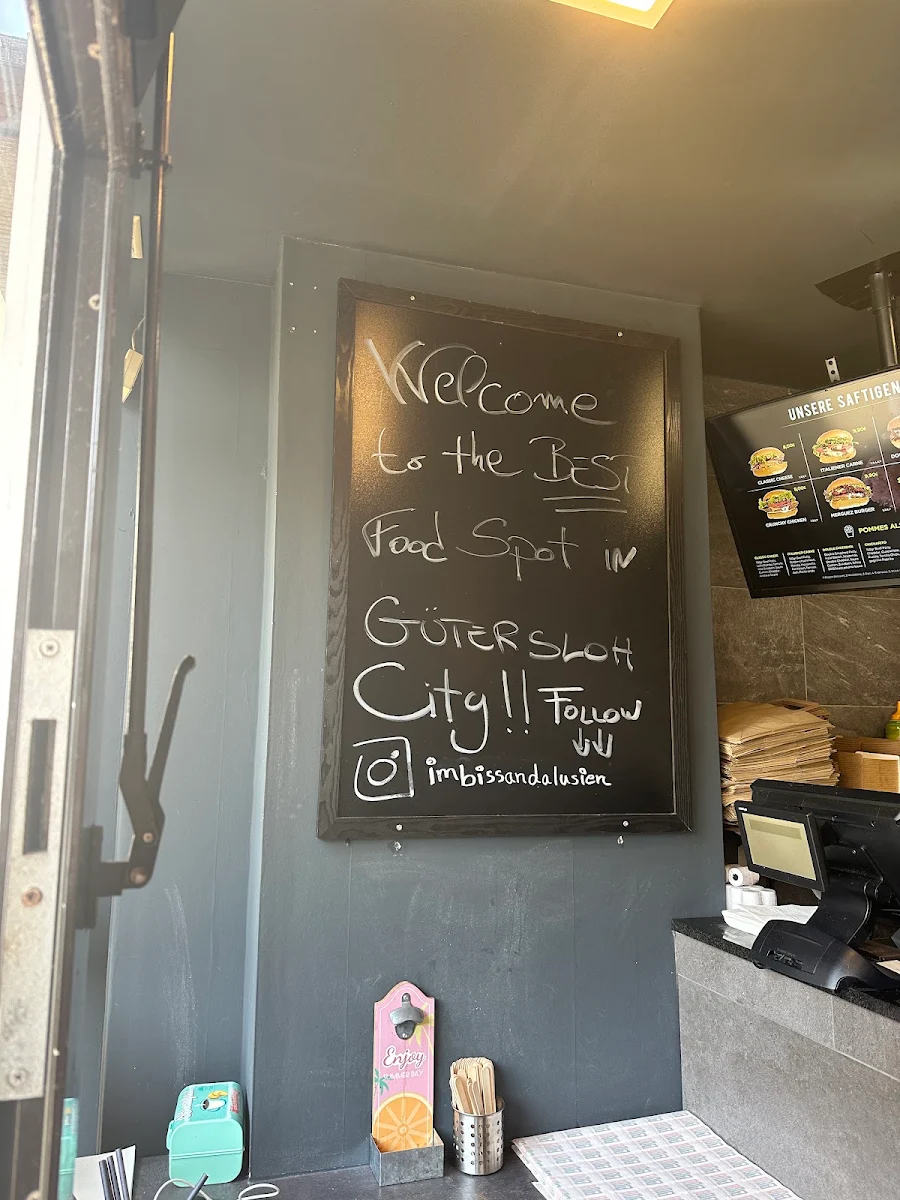 Welcome
to the BEST
Food Spot IN
GÜTERSLOH
City!! FOLLOW
imbissandalusien
UNSERE SAFTIGEN
CLASSIC CHEESE
ITALIENER CARNE
CRUNCHY CHICKEN
MERGUEZ BURGER
POMMES
Enjoy
SUMMER DAY